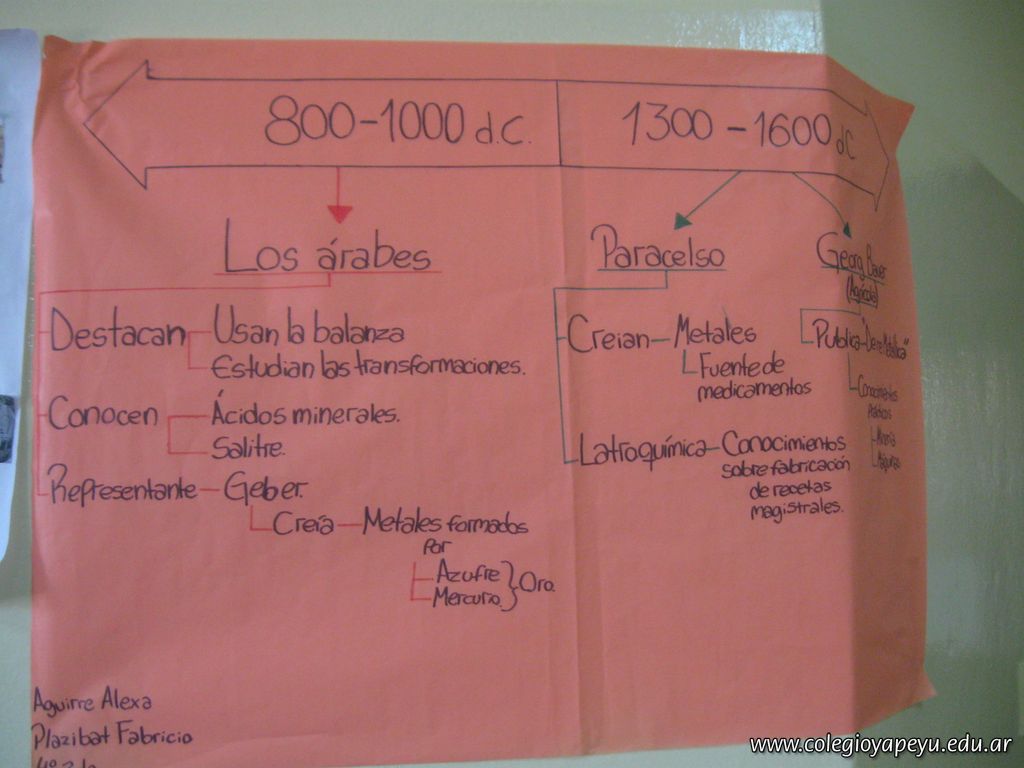 800-1000 d.C.
1300-1600 dC
Los árabes
Destacan
Usan la balanza
Estudian las transformaciones.
Conocen
Ácidos minerales.
Salitre.
Representante
Geber.
Crería
Metales formados
por
Azufre
Mercurio.
Oro.
Paracelso
Creían
Metales
Fuente de
medicamentos
Latroquímica
Conocimientos
sobre fabricación
de recetas
magistrales.
Georg Bauer
(Agrícola)
Publica
"De re Metallica"
Conocimientos
Aguirre Alexa
Plazibat Fabricio
www.colegioyapeyu.edu.ar